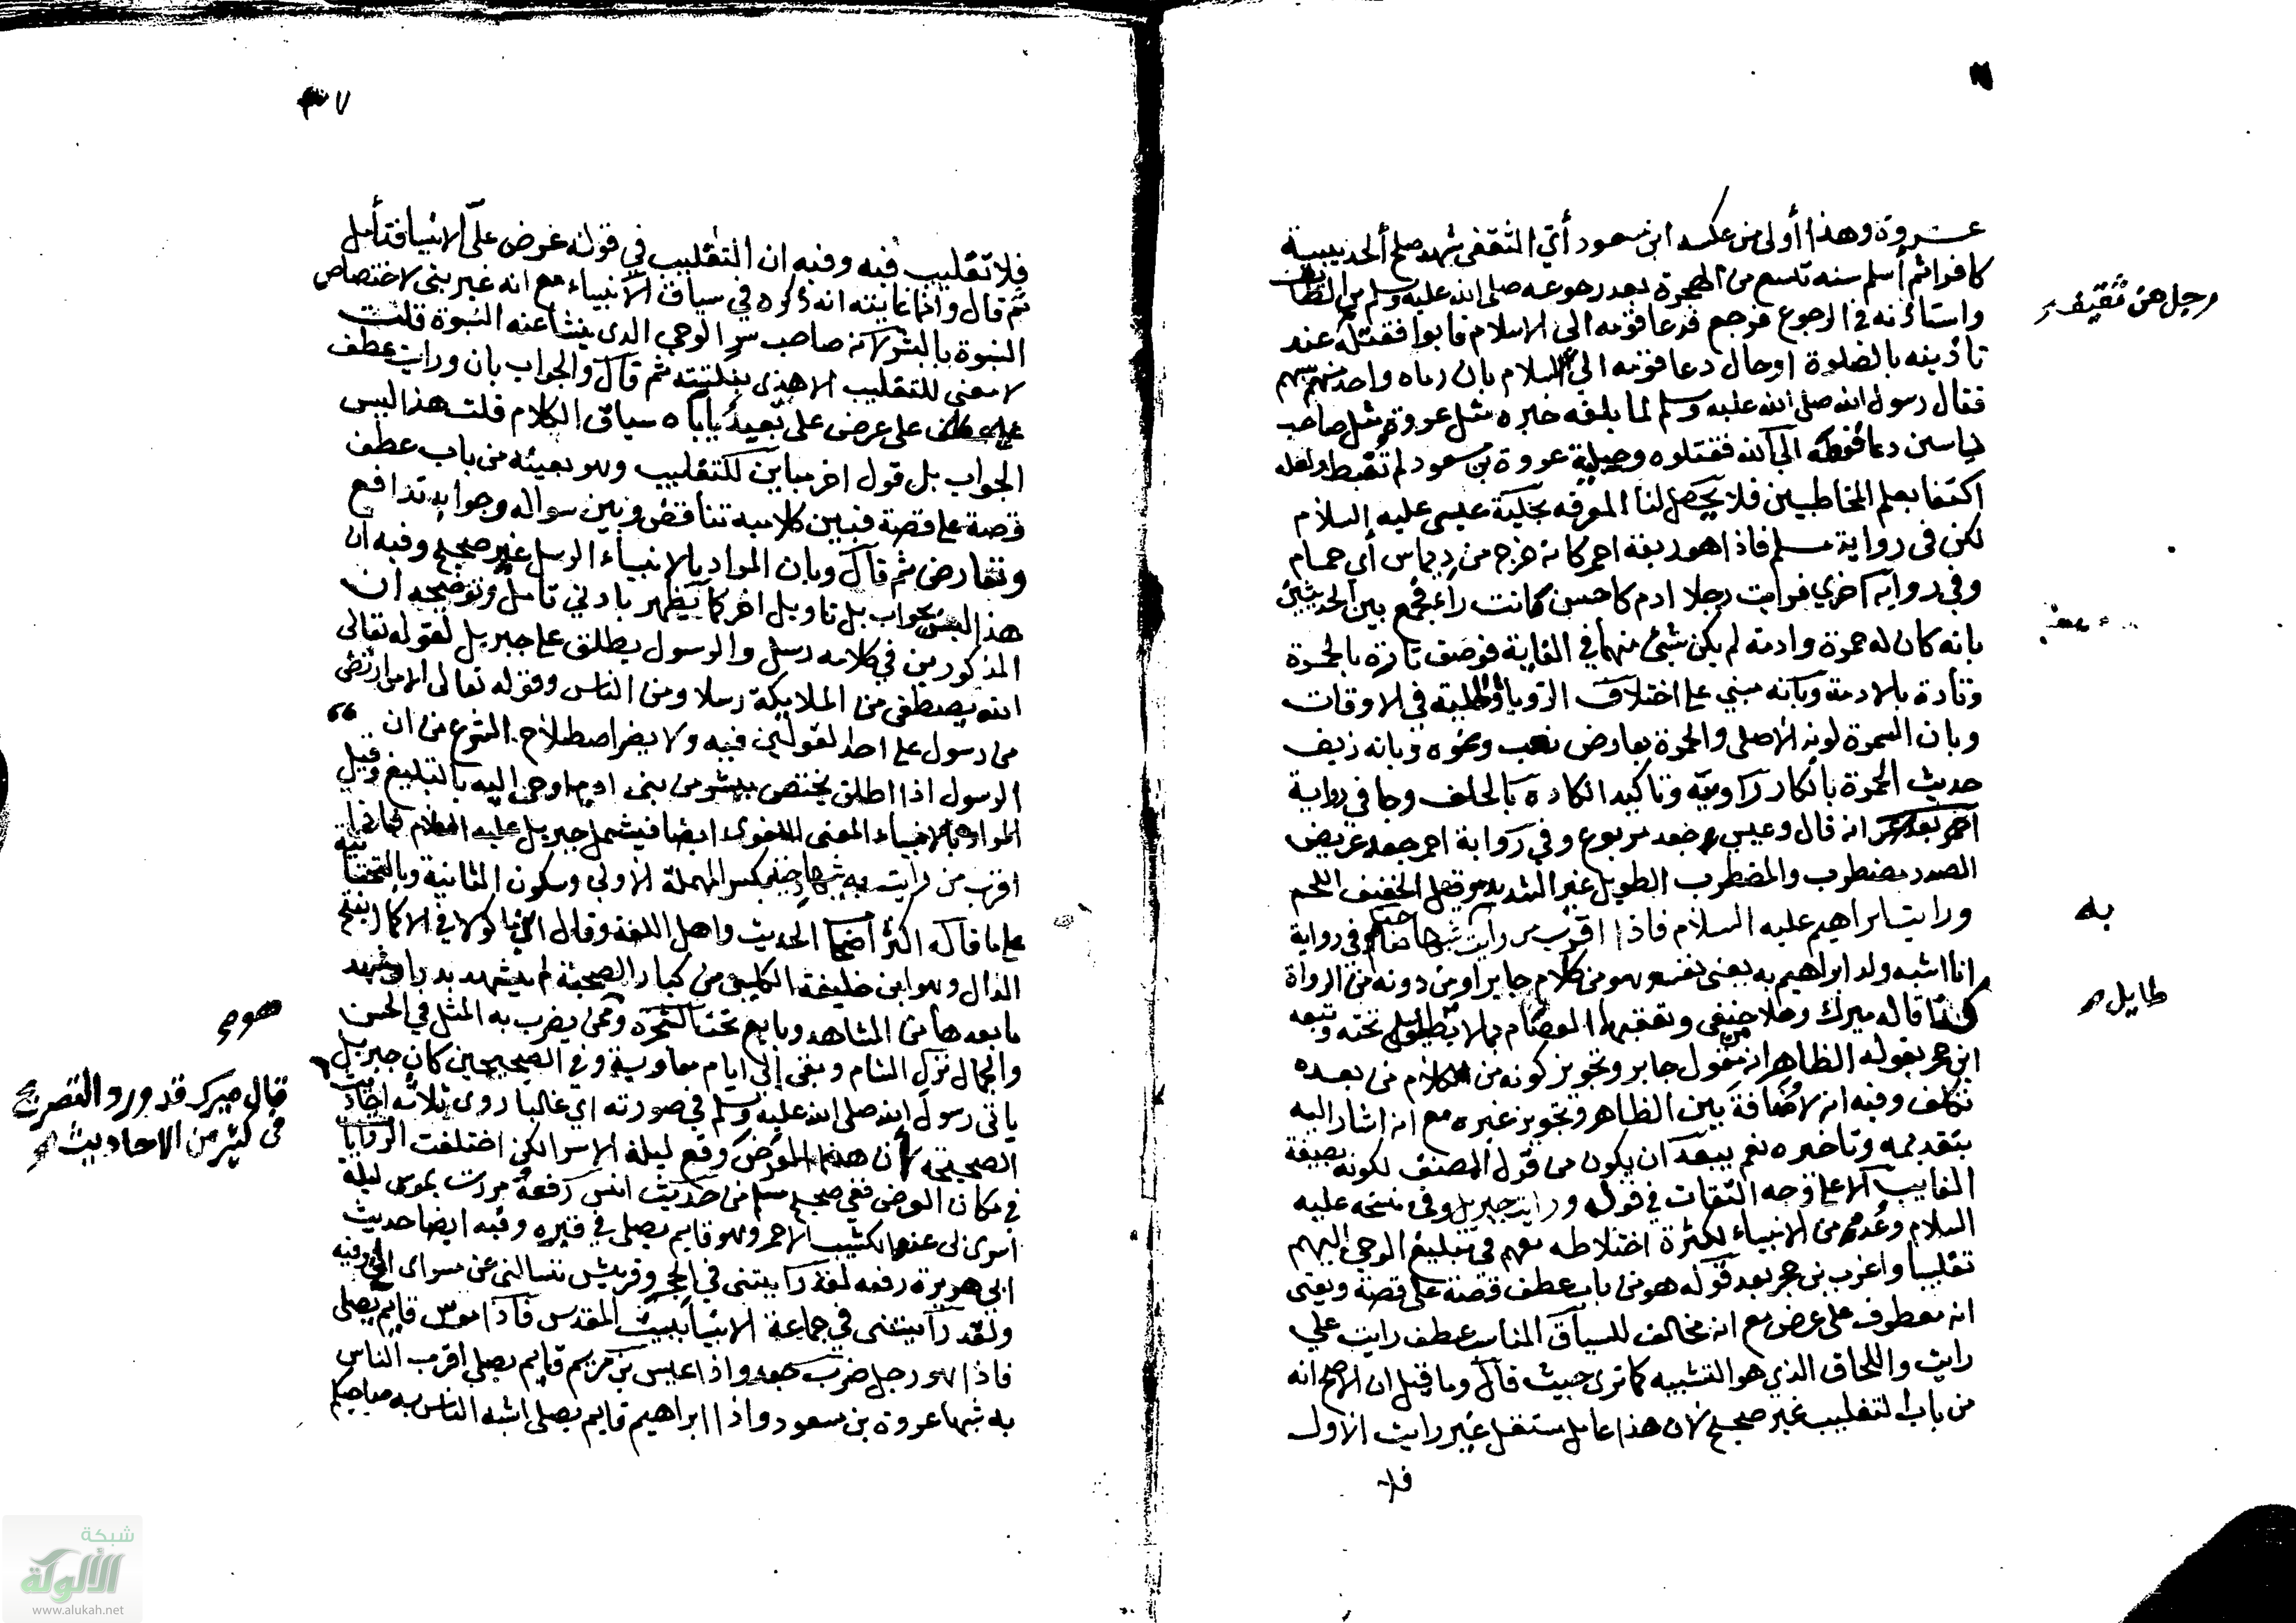 عروة وهذا أولى من عكسه ابن مسعود أي الثقفى شهد صلح الحديبية
كافرا ثم أسلم سنه تسع من الهجرة بعد رجوعه صلى الله عليه وسلم من الطائف
رجل من ثقيف
واستاذنه في الرجوع فرجع فدعا قومه الى الاسلام فابوا فقتله عند
تاذينه بالصلوة او حال دعا قومه الى الاسلام بان رماه واحد منهم بسهم
فقال رسول الله صلى الله عليه وسلم لما بلغه خبره مثل عروة مثل صاحب
ياسين دعا قومه الى الله فقتلوه وحلية عروة بن مسعود لم تضبط ولعله
اكتفا بعلم المخاطبين فلا يحصل لنا المعرفه بحلية عيسى عليه السلام
لكن في رواية مسلم فاذا هو ربعة احمر كانه خرج من ديماس أي حمام
وفي روايه اخري فرايت رجلا ادم كاحسن ما انت راء فجمع بين الحديثين
بانه كان له حمرة وادمة لم يكن شئ منهما في الغاية فوصف تارة بالحمرة
وتارة بالادمة وبانه مبني على اختلاف الرويا والحلية في الاوقات
وبان السمرة لونه الاصلي والحمرة بعارض تعب ونحوه وبانه زيف
حديث الحمرة بانكار راويه وتاكيد انكاره بالحلف وجا في رواية
انه قال وعيسى جعد مربوع وفي رواية احمر جعد عريض
الصدر مضطرب والمضطرب الطويل غير الشديد وقيل الخفيف اللحم
ورايت ابراهيم عليه السلام فاذا اقرب من رايت به شبها صاحبكم وفي رواية
انا اشبه ولد ابراهيم به يعنى نفسه وهو من كلام جابر او من دونه من الرواة
كذا قاله ميرك وملا حنفي وتعقبهما العصام بما لا طايل تحته وتبعه
ابن حجر بقوله الظاهر انه من قول جابر وتجويز كونه من كلام من بعده
تكلف وفيه انه لا منافاة بين الظاهر وتجويز غيره مع انه اشار اليه
بتقديمه وتاخيره نعم يبعد ان يكون من قول المصنف لكونه بصيغة
الغايب الا على وجه التفات في قوله ورايت جبريل وفي نسخه عليه
السلام وعدّه من الانبياء لكثرة اختلاطه معهم في تبليغ الوحي اليهم
تغليبا واغرب بن حجر بعد قوله هو من باب عطف قصة على قصة ويعني
انه معطوف على عرض مع انه مخالف للسياق المناسب عطف رايت على
رايت واللحاق الذي هو التشبيه كما ترى حيث قال وما قيل ان الاصح انه
من باب التغليب غير صحيح لان هذا عامل مستقل غير رايت الاول
فلا
٣٧
فلا تغليب فيه وفيه ان التغليب في قوله عرض علىّ الانبيا فتأمل
ثم قال وانما غايته انه ذكره في سياق الانبياء مع انه غير بنى لاختصاص
النبوة بالبشر لانه صاحب سر الوحي الذي ينشا عنه النبوة قلت
لا معنى للتغليب الا هذى ثم قال والجواب بان ورايت عطف
على عرض على بعيد ياباه سياق الكلام قلت هذا ليس
الجواب بل قول اخر مباين للتغليب وهو بعينه من باب عطف
قصة على قصة فبين كلاميه تناقض وبين سواله وجوابه تدافع
وتعارض ثم قال وبان المراد بالانبياء الرسل غير صحيح وفيه ان
هذا ليس بجواب بل تاويل اخر كما يظهر بادني تامل وتوضيحه ان
المذكورين في كلامه رسل والرسول يطلق على جبريل لقوله تعالى
الله يصطفى من الملايكة رسلا ومن الناس وقوله تعالى الا من ارتضى
من رسول على احد القولين فيه ولا يضر اصطلاح الشرع من ان
الرسول اذا اطلق يختص ببشر من بنى ادم اوحى اليه بالتبليغ وقيل
المراد بالانبياء المعنى اللغوى ايضا فيشمل جبريل عليه السلام فاذا
اقرب من رايت به شبها دحية بكسر المهملة الاولي وسكون الثانية وبالتحتانية
على ما قاله اكثر اصحاب الحديث واهل اللغة وقال ابن ماكولا في الاكمال بفتح
الدال وهو ابن خليفة الكلبي من كبار الصحابة لم يشهد بدرا وشهد
ما بعدها من المشاهد وبايع تحت الشجرة وهو ممن يضرب به المثل في الحسن
والجمال نزل الشام وبقى الى ايام معاوية وفي الصحيحين كان جبريل
ياتى رسول الله صلى الله عليه وسلم في صورته اي غالبا روى ثلاثه احاديث
قال ميرك قد ورد التصريح
في كثير من الاحاديث
الصحيحه بأن هذا العرض وقع ليلة الاسرا لكن اختلفت الروايات
في مكان العرض ففي صحيح مسلم من حديث انس رفعه مررت بموسى ليلة
اسرى لى عند الكثيب الاحمر وهو قايم يصلى في قبره وفيه ايضا حديث
ابى هريرة رفعه لقد رايتنى في الحجر وقريش تسالنى عن مسراى وفيه
ولقد رايتنى في جماعة الانبيا ببيت المقدس فاذا موسى قايم يصلى
فاذا هو رجل ضرب جعد واذا عيسى بن مريم قايم يصلى اقرب الناس
به شبها عروة بن مسعود واذا ابراهيم قايم يصلى اشبه الناس به صاحبكم
شبكة
الألوكة
www.alukah.net